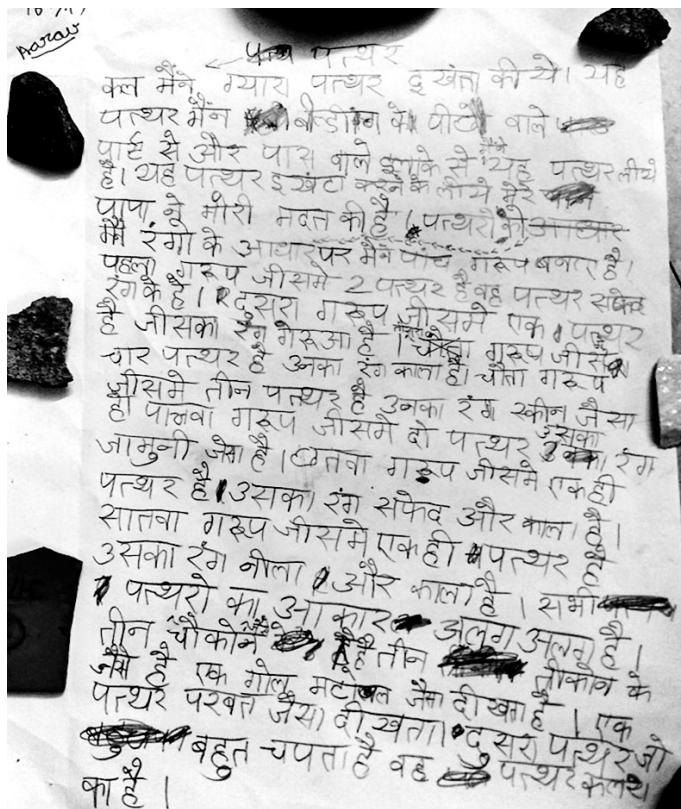 Aarav
पत्थर
कल मैंने ग्यारा पत्थर इखंता की ये। यह
पत्थर मैंन के पीछे वाले
पार्ट से और पास वाले इलाके से मैंने यह पत्थर लीये
है। यह पत्थर इखंटा करने के लीये मेरे
पापा ने मोरी मदत की है। पत्थरो की
मैंने रंगो के आधार पर मैंन पांच गरूप बनाए है।
पहला गरूप जीसमे 2 पत्थर है वह पत्थर सफेद
रंग के है। दुसरा गरूप जीसमे एक पत्थर
है जीसका रंग गेरूआ है। गरूप जीसमे
चार पत्थर है उनका रंग काला है। चौता गरूप
जीसमे तीन पत्थर है उनका रंग स्कीन जैसा
है। पाचवा गरूप जीसमे दो पत्थर उसका रंग
जामुनी जैसा है। छतवा गरूप जीसमे एक ही
पत्थर है। उसका रंग सफेद और काला है।
सातवा गरूप जीसमे एक ही पत्थर है
उसका रंग नीला और काला है। सभी
पत्थरो का आकार अलग अलग है।
तीन चौकोने है तीन तीकोन के
जैसे है। एक गोल जैसा दीखता है। एक
पत्थर परबत जैसा दीखता। दुसरा पत्थर जो
बहुत चपता है वह पत्थर
का है।